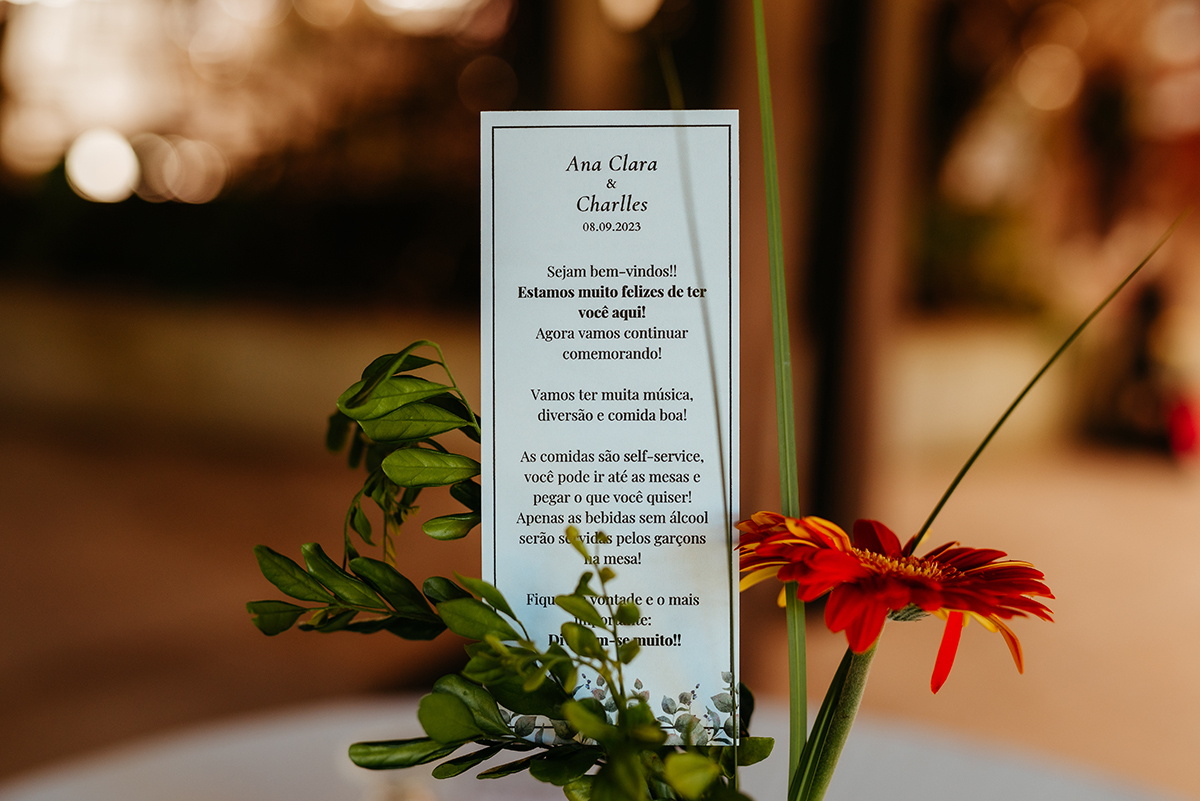 Ana Clara
&
Charlles
08.09.2023
Sejam bem-vindos!!
Estamos muito felizes de ter
você aqui!
Agora vamos continuar
comemorando!
Vamos ter muita música,
diversão e comida boa!
As comidas são self-service,
você pode ir até as mesas e
pegar o que você quiser!
Apenas as bebidas sem álcool
serão servidas pelos garçons
na mesa!
Fiquem vontade e o mais
importante:
Divirtam-se muito!!